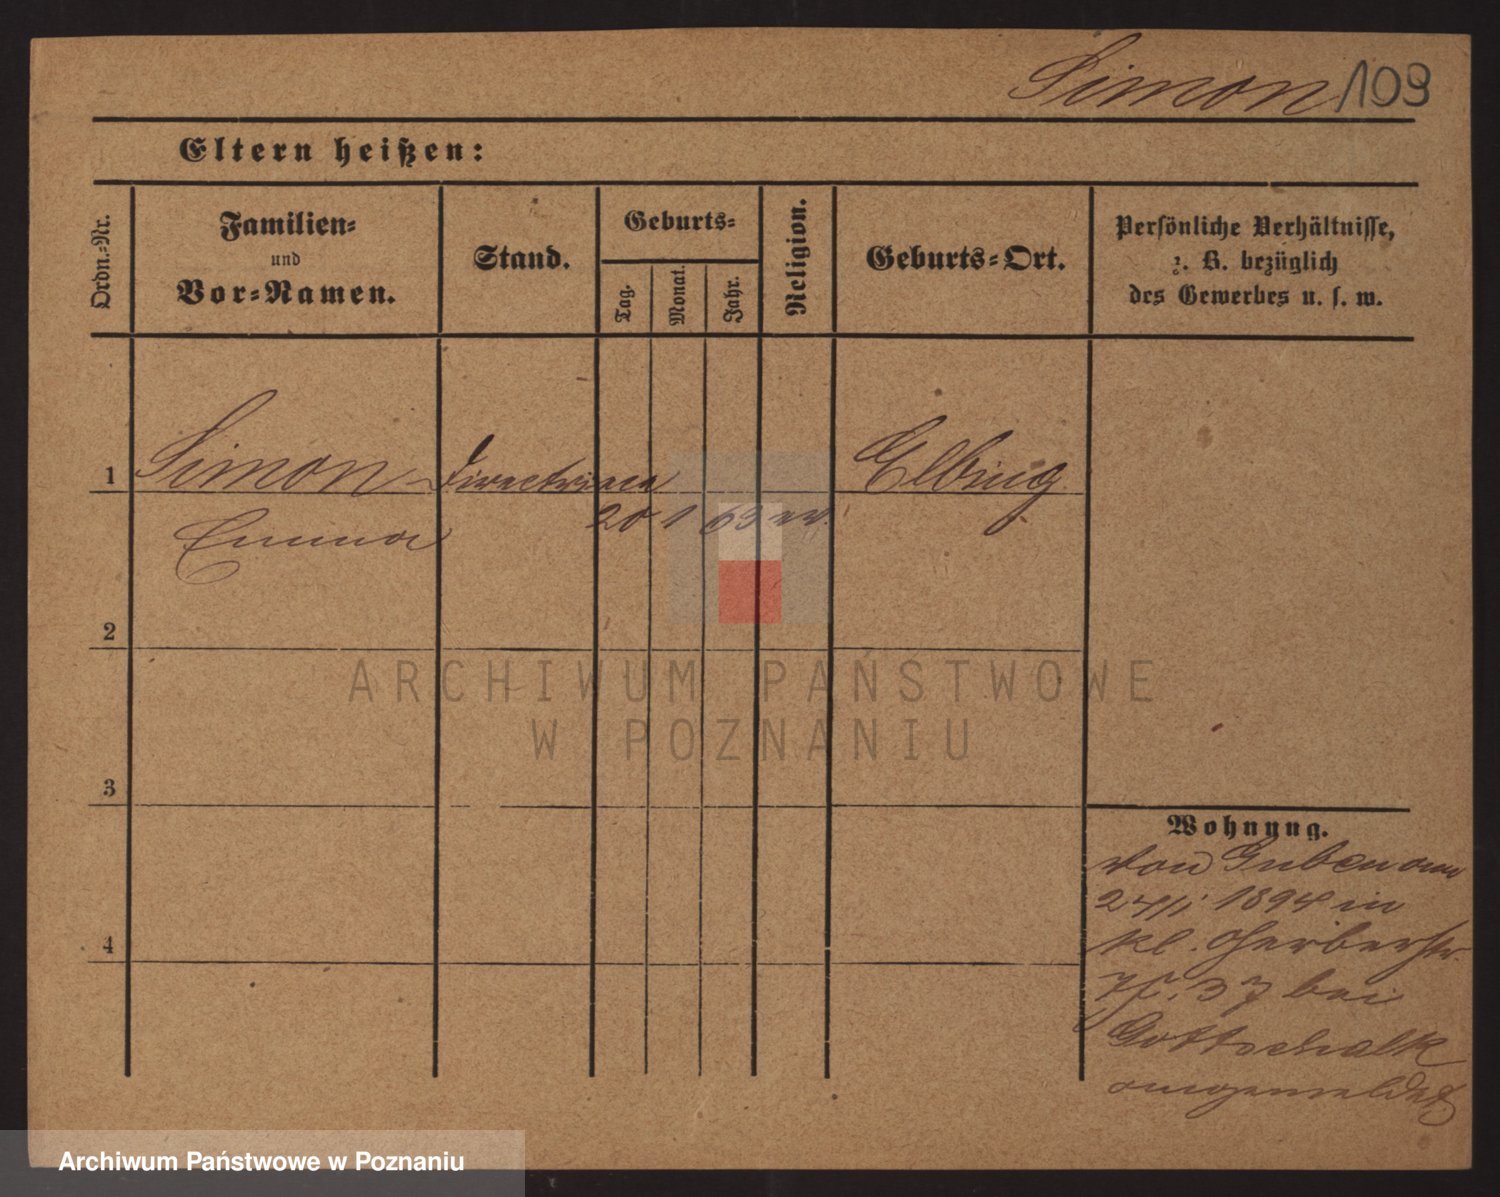 Simon 109
Eltern heißen:
Ordn.=Nr.
Familien=
und
Vor=Namen.
Stand.
Geburts=
Tag.
Monat.
Jahr.
Religion.
Geburts=Ort.
Persönliche Verhältnisse,
z. B. bezüglich
des Gewerbes u. s. w.
1 Simon Directrice Elbing
Emma 20 1 63 ev.
2
3
4
Wohnung.
von Guben am
1894 in
kl. Gerberstr.
bei
Gottschalk
angemeldet
ARCHIWUM PAŃSTWOWE
W POZNANIU
Archiwum Państwowe w Poznaniu